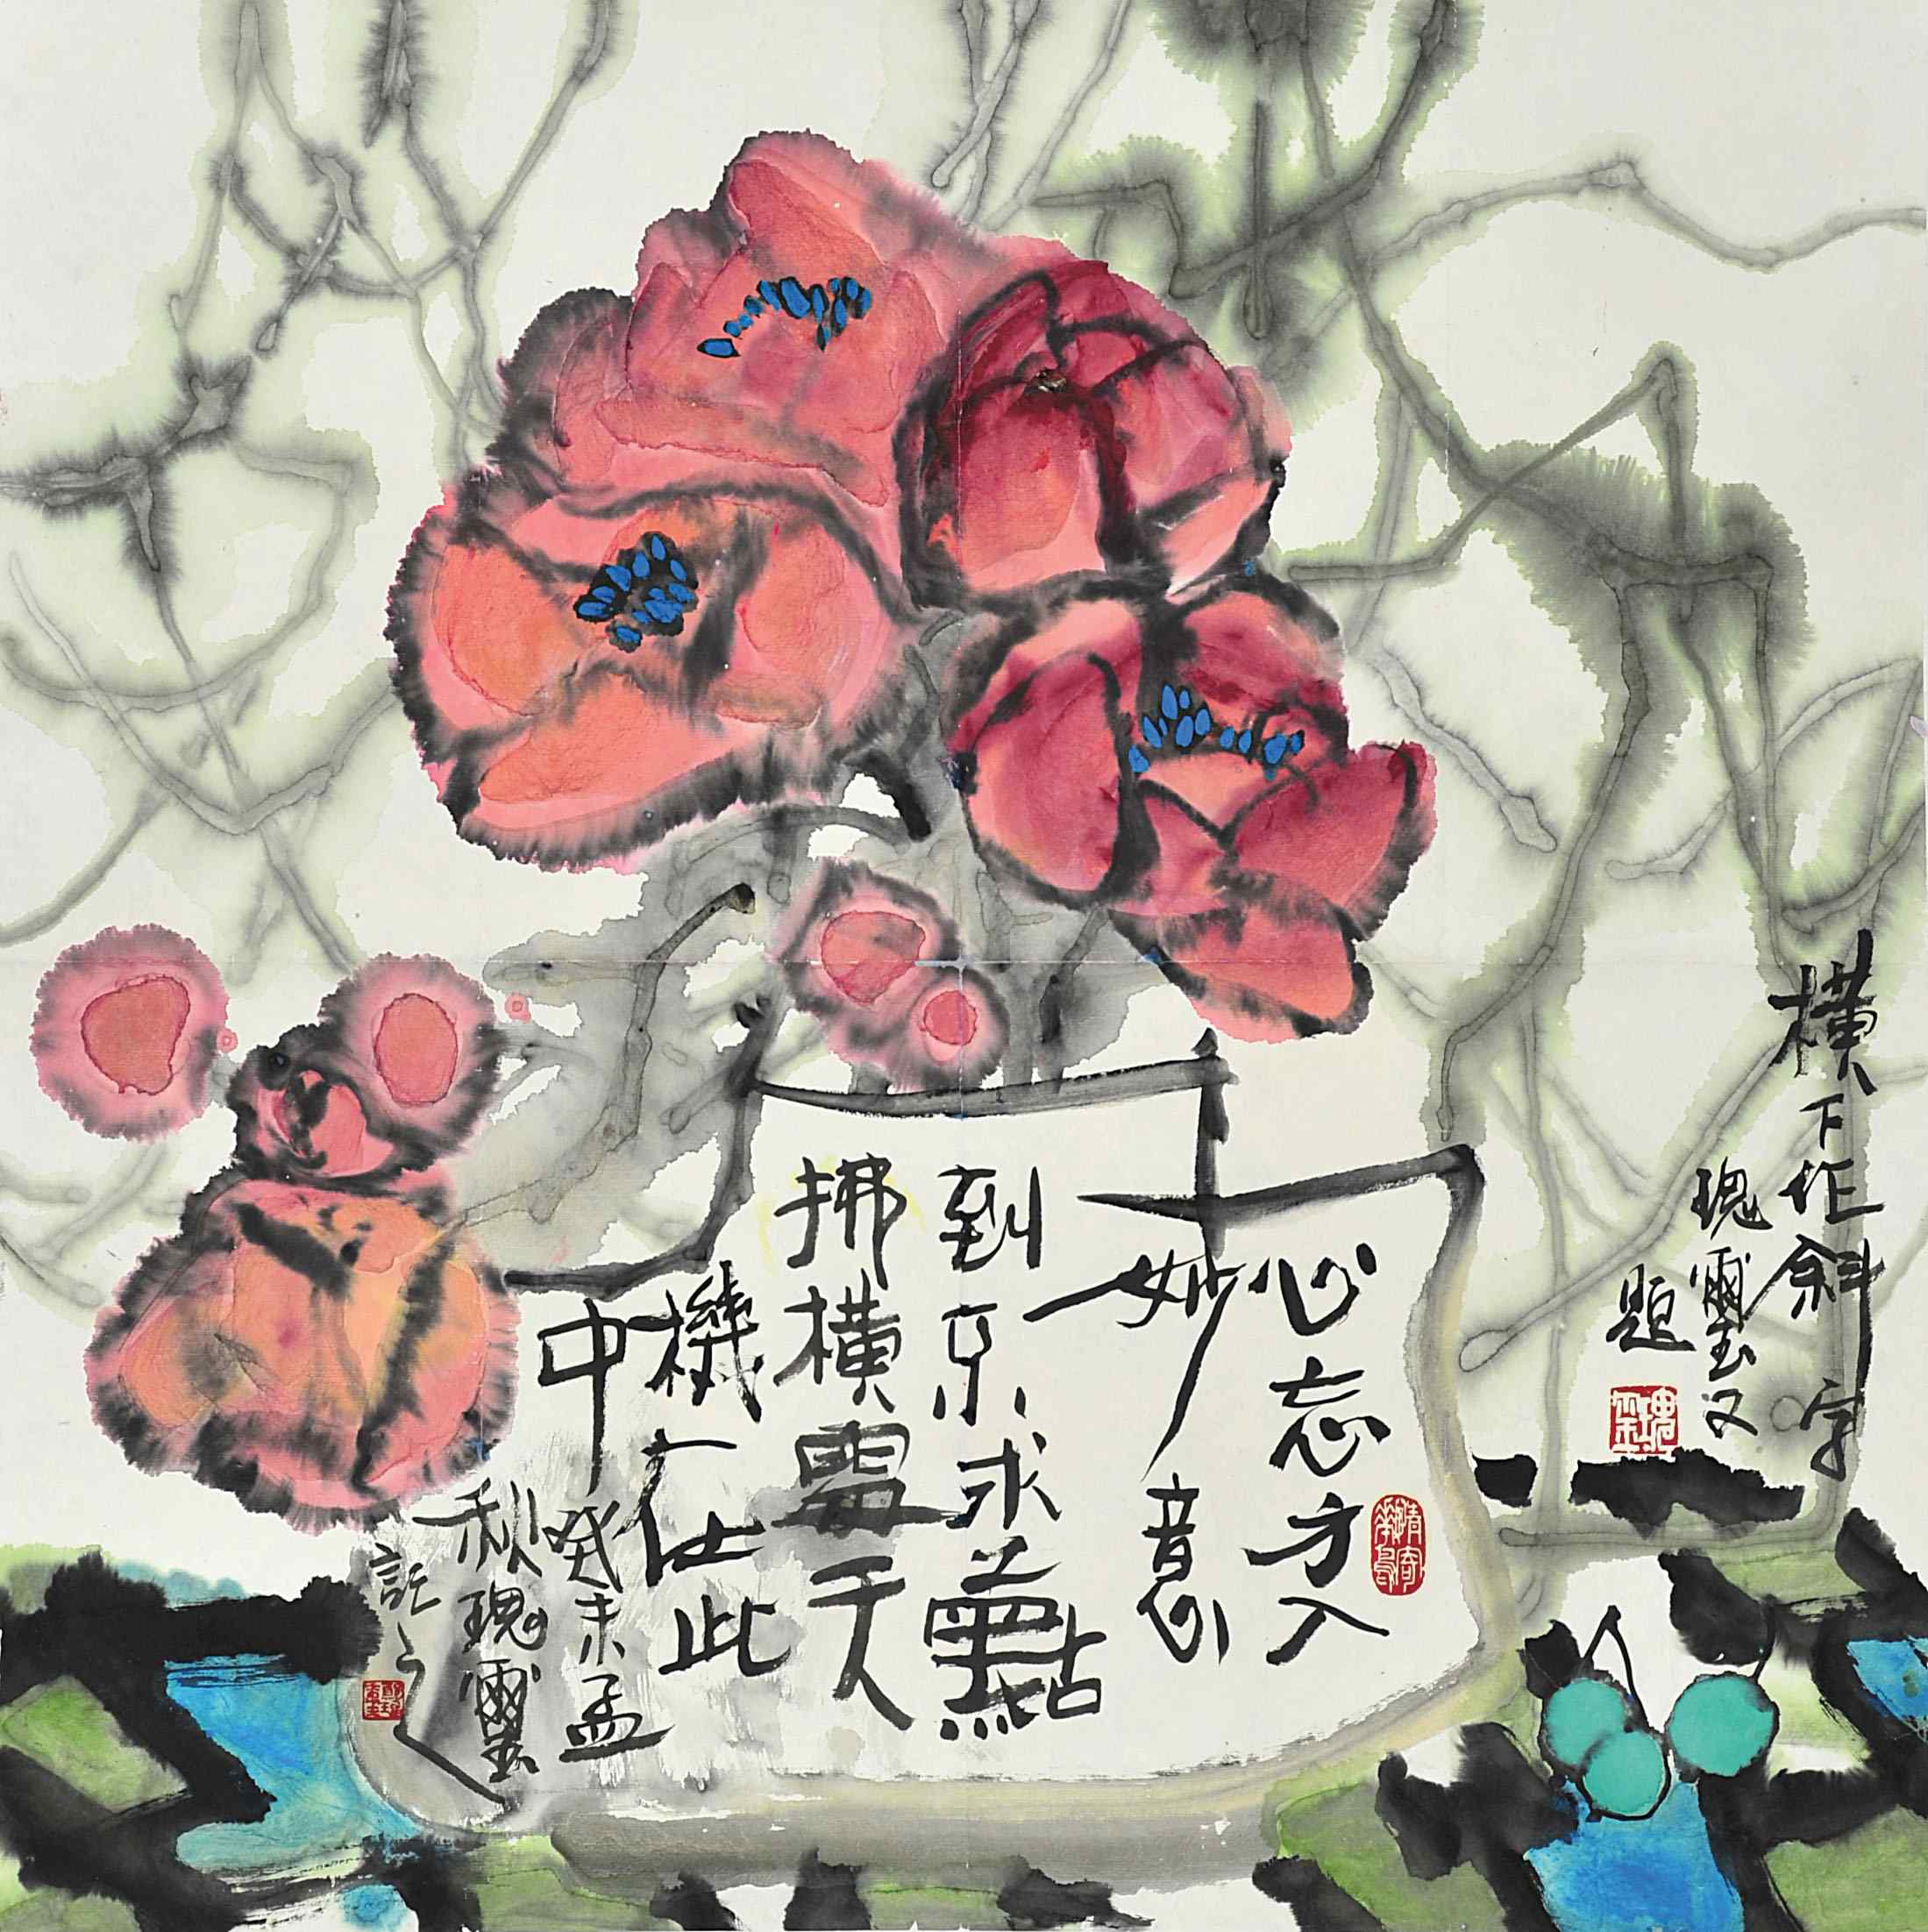 橫下作斜字
瑰璽又
題
心忘方入
妙意
到不求工點
拂橫處天
機在此
中
癸未孟
秋瑰璽
記之